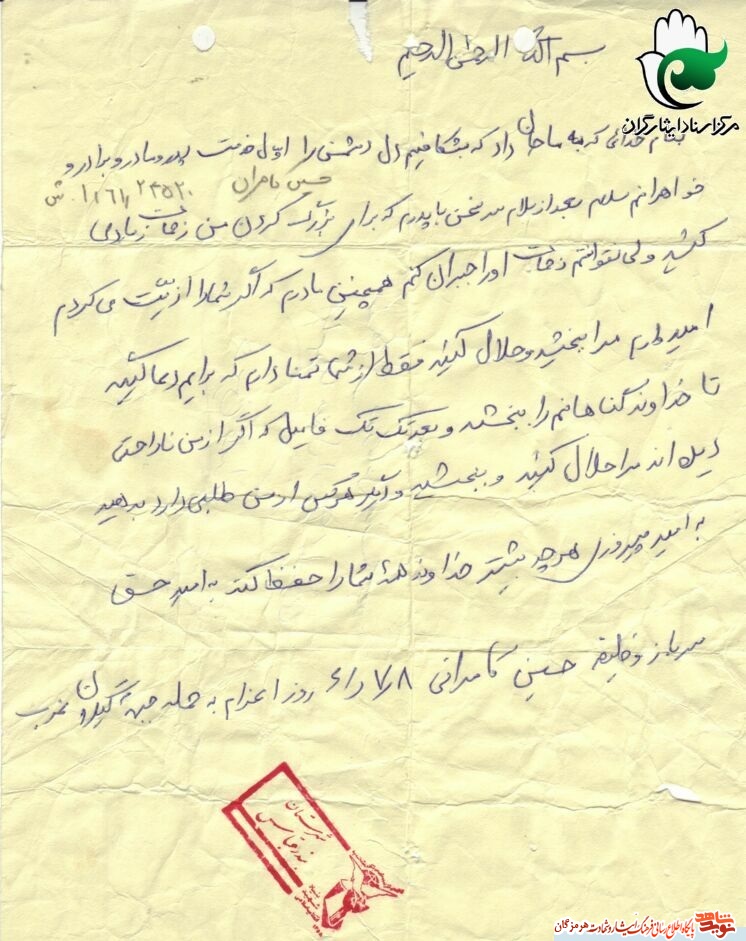 بسم الله الرحمن الرحیم
مرکز اسناد ایثارگران
بنام خدائی که به ما جان داد که بشکافیم دل دشمن را اول خدمت پدر و مادر و برادر و
حسین کامران
خواهرانم سلام بعد از سلام سخن با پدرم که برای بزرگ کردن من زحمات زیادی
کشید ولی نتوانستم زحمات او را جبران کنم همچنین مادرم که اگر شما را ازیّت می کردم
امیدوارم مرا ببخشید و حلال کنید فقط از شما تمنا دارم که برایم دعا کنید
تا خداوند گناهانم را ببخشد و بعد تک تک فامیل که اگر از من ناراحتی
دیده اند مرا حلال کنید و ببخشید و اگر هرکس از من طلبی دارد بدهید
به امید پیروزی هرچه بیشتر خداوند همه شما را حفظ کند به امید حق
سرباز وظیفه حسین کامرانی روز اعزام به حمله جبهه گیلان غرب
شهرستان
بندرعباس
نوید شاهد
پایگاه اطلاع رسانی فرهنگ ایثار و شهادت هرمزگان